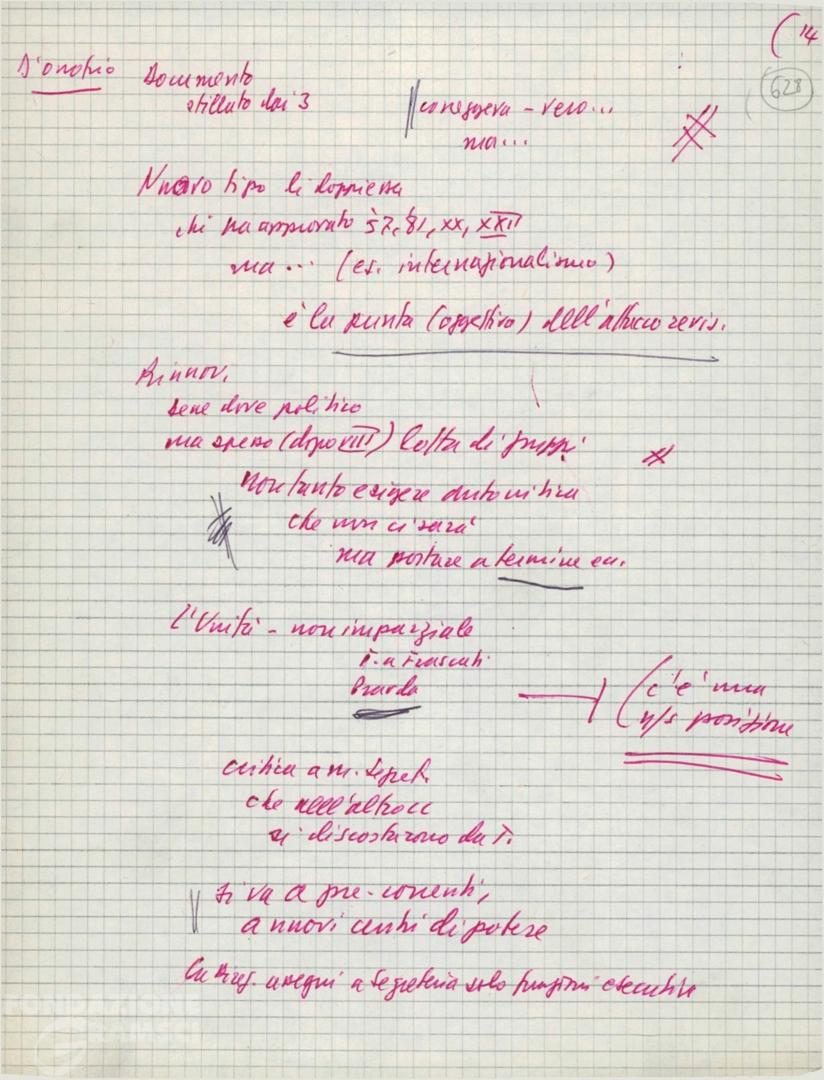 (14
628
D'onofrio
Documento
stillato dai 3
correggeva - vero...
ma...
Nuovo tipo di doppiezza
chi ha approvato 57, 81, XX, XXII
ma... (es. internazionalismo)
è la punta (oggettiva) dell'attacco revis.
Rinnov.
bene dove politico
ma spesso (dopo VIII) lotta di gruppi
non tanto esigere autocritica
che non ci sarà
ma portare a termine
L'Unità - non imparziale
T. a Frascati
Pravda
(c'è una
n/s posizione
critica a m. Segret.
che nell'altro cc
si discostarono da T.
si va a pre-correnti,
a nuovi centri di potere
La Direz. assegni a Segreteria solo funzioni esecutive
FONDAZIONE
GRAMSCI